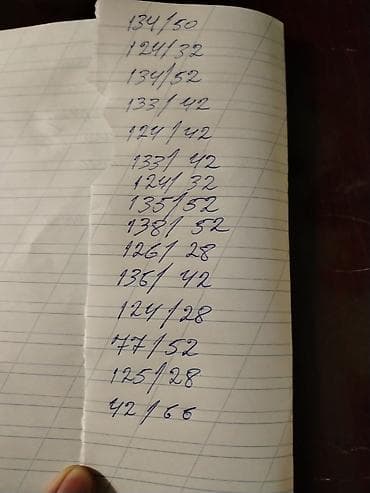 134/50
124/32
134/52
133/42
124/42
133/42
124/32
135/52
138/52
126/28
136/42
124/28
77/52
125/28
42/66